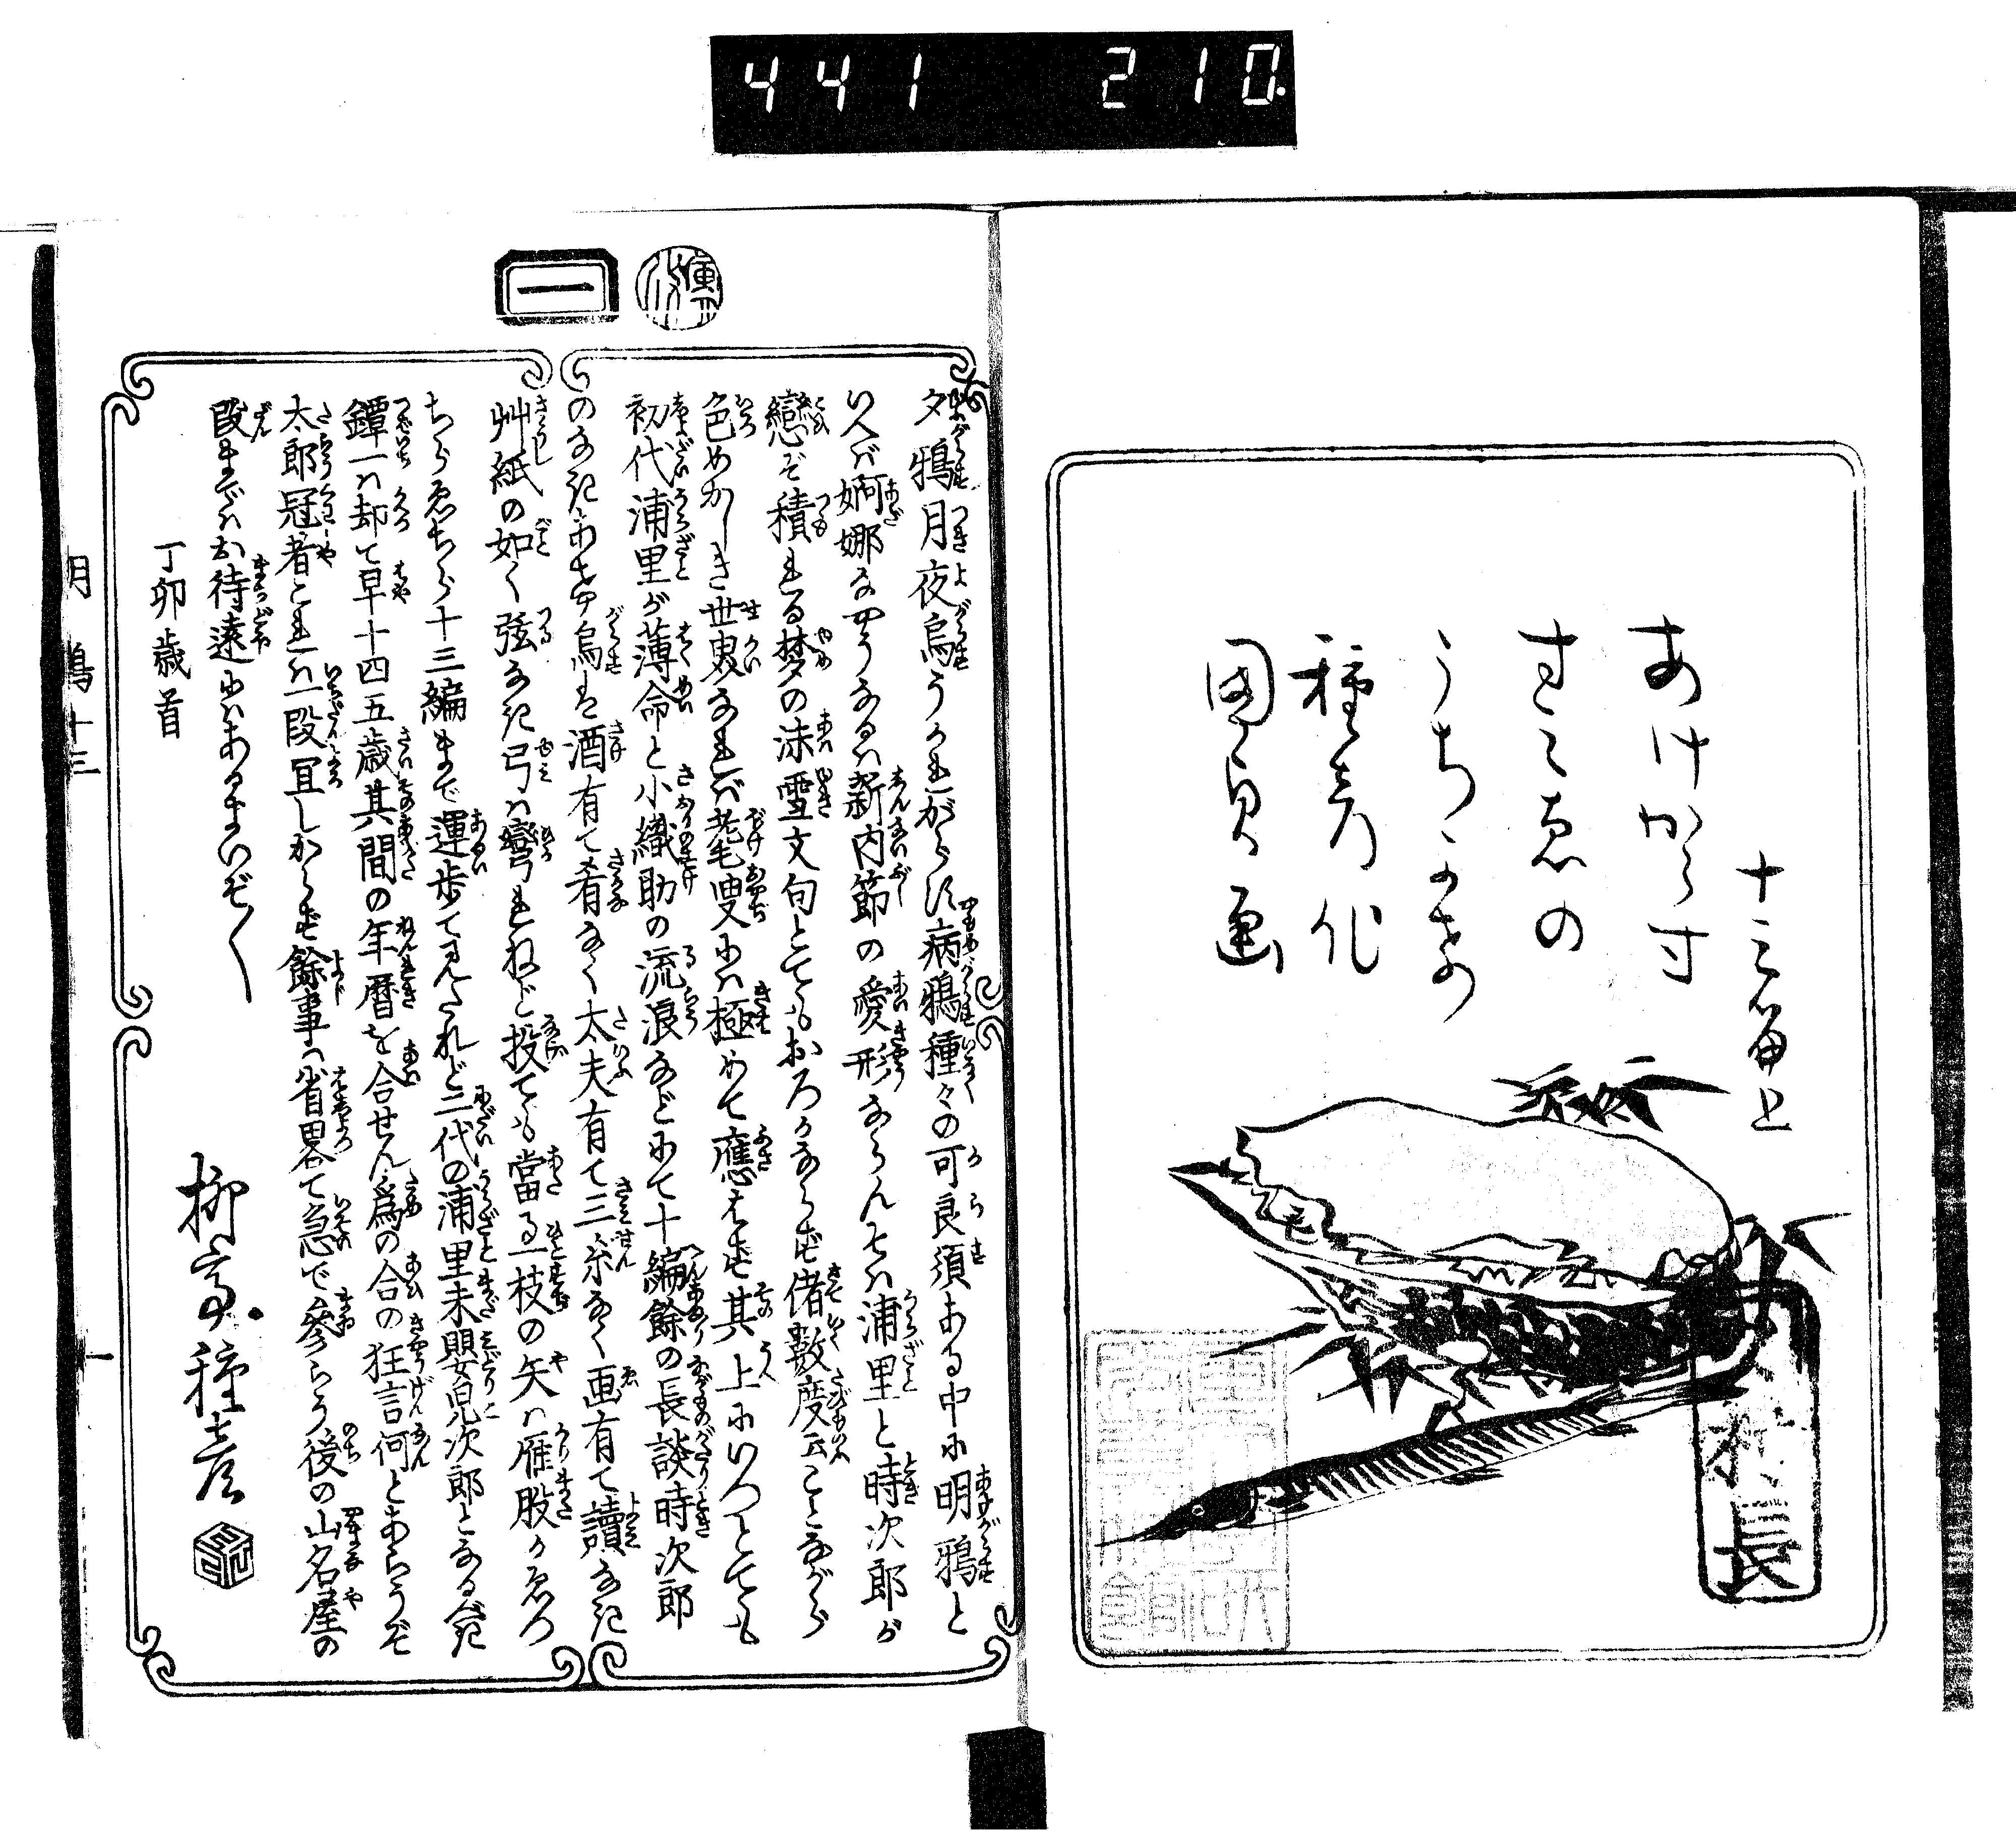 441 210
十三篇上
あけからす
すゑの
うちかけ
種彦作
国貞画
長
一
夕鴉月夜烏うかれがらす病鴉種々の可良須ある中に明鴉と
いへば婀娜なやうなるは新内節の愛形ならんそは浦里と時次郎が
戀ぞ積れる夢の沫雪文句とてもおろかならず偖數度云ことながら
色めかしき世界なれば老耄叟には極めて應はず其上にいつとても
初代浦里が薄命と小織助の流浪などにて十編餘の長談時次郎
のなきにあはう烏は酒有て肴なく太夫有て三糸なく画有て讀なき
艸紙の如く弦なき弓は彎れねど投ても當る一枝の矢は雁股かゑつ
ちらゑちら十三編まで運歩て見たれど二代の浦里未嬰児次郎となるべき
鐔一は却て早十四五歳其間の年暦を合せん為の合の狂言何とあらうぞ
太郎冠者これは一段冝しからず餘事は省畧て急で參らう後の山名屋の
段まではお待遠にはあるまいぞ〱
丁卯歳首
柳亭種彦
明烏十三
一